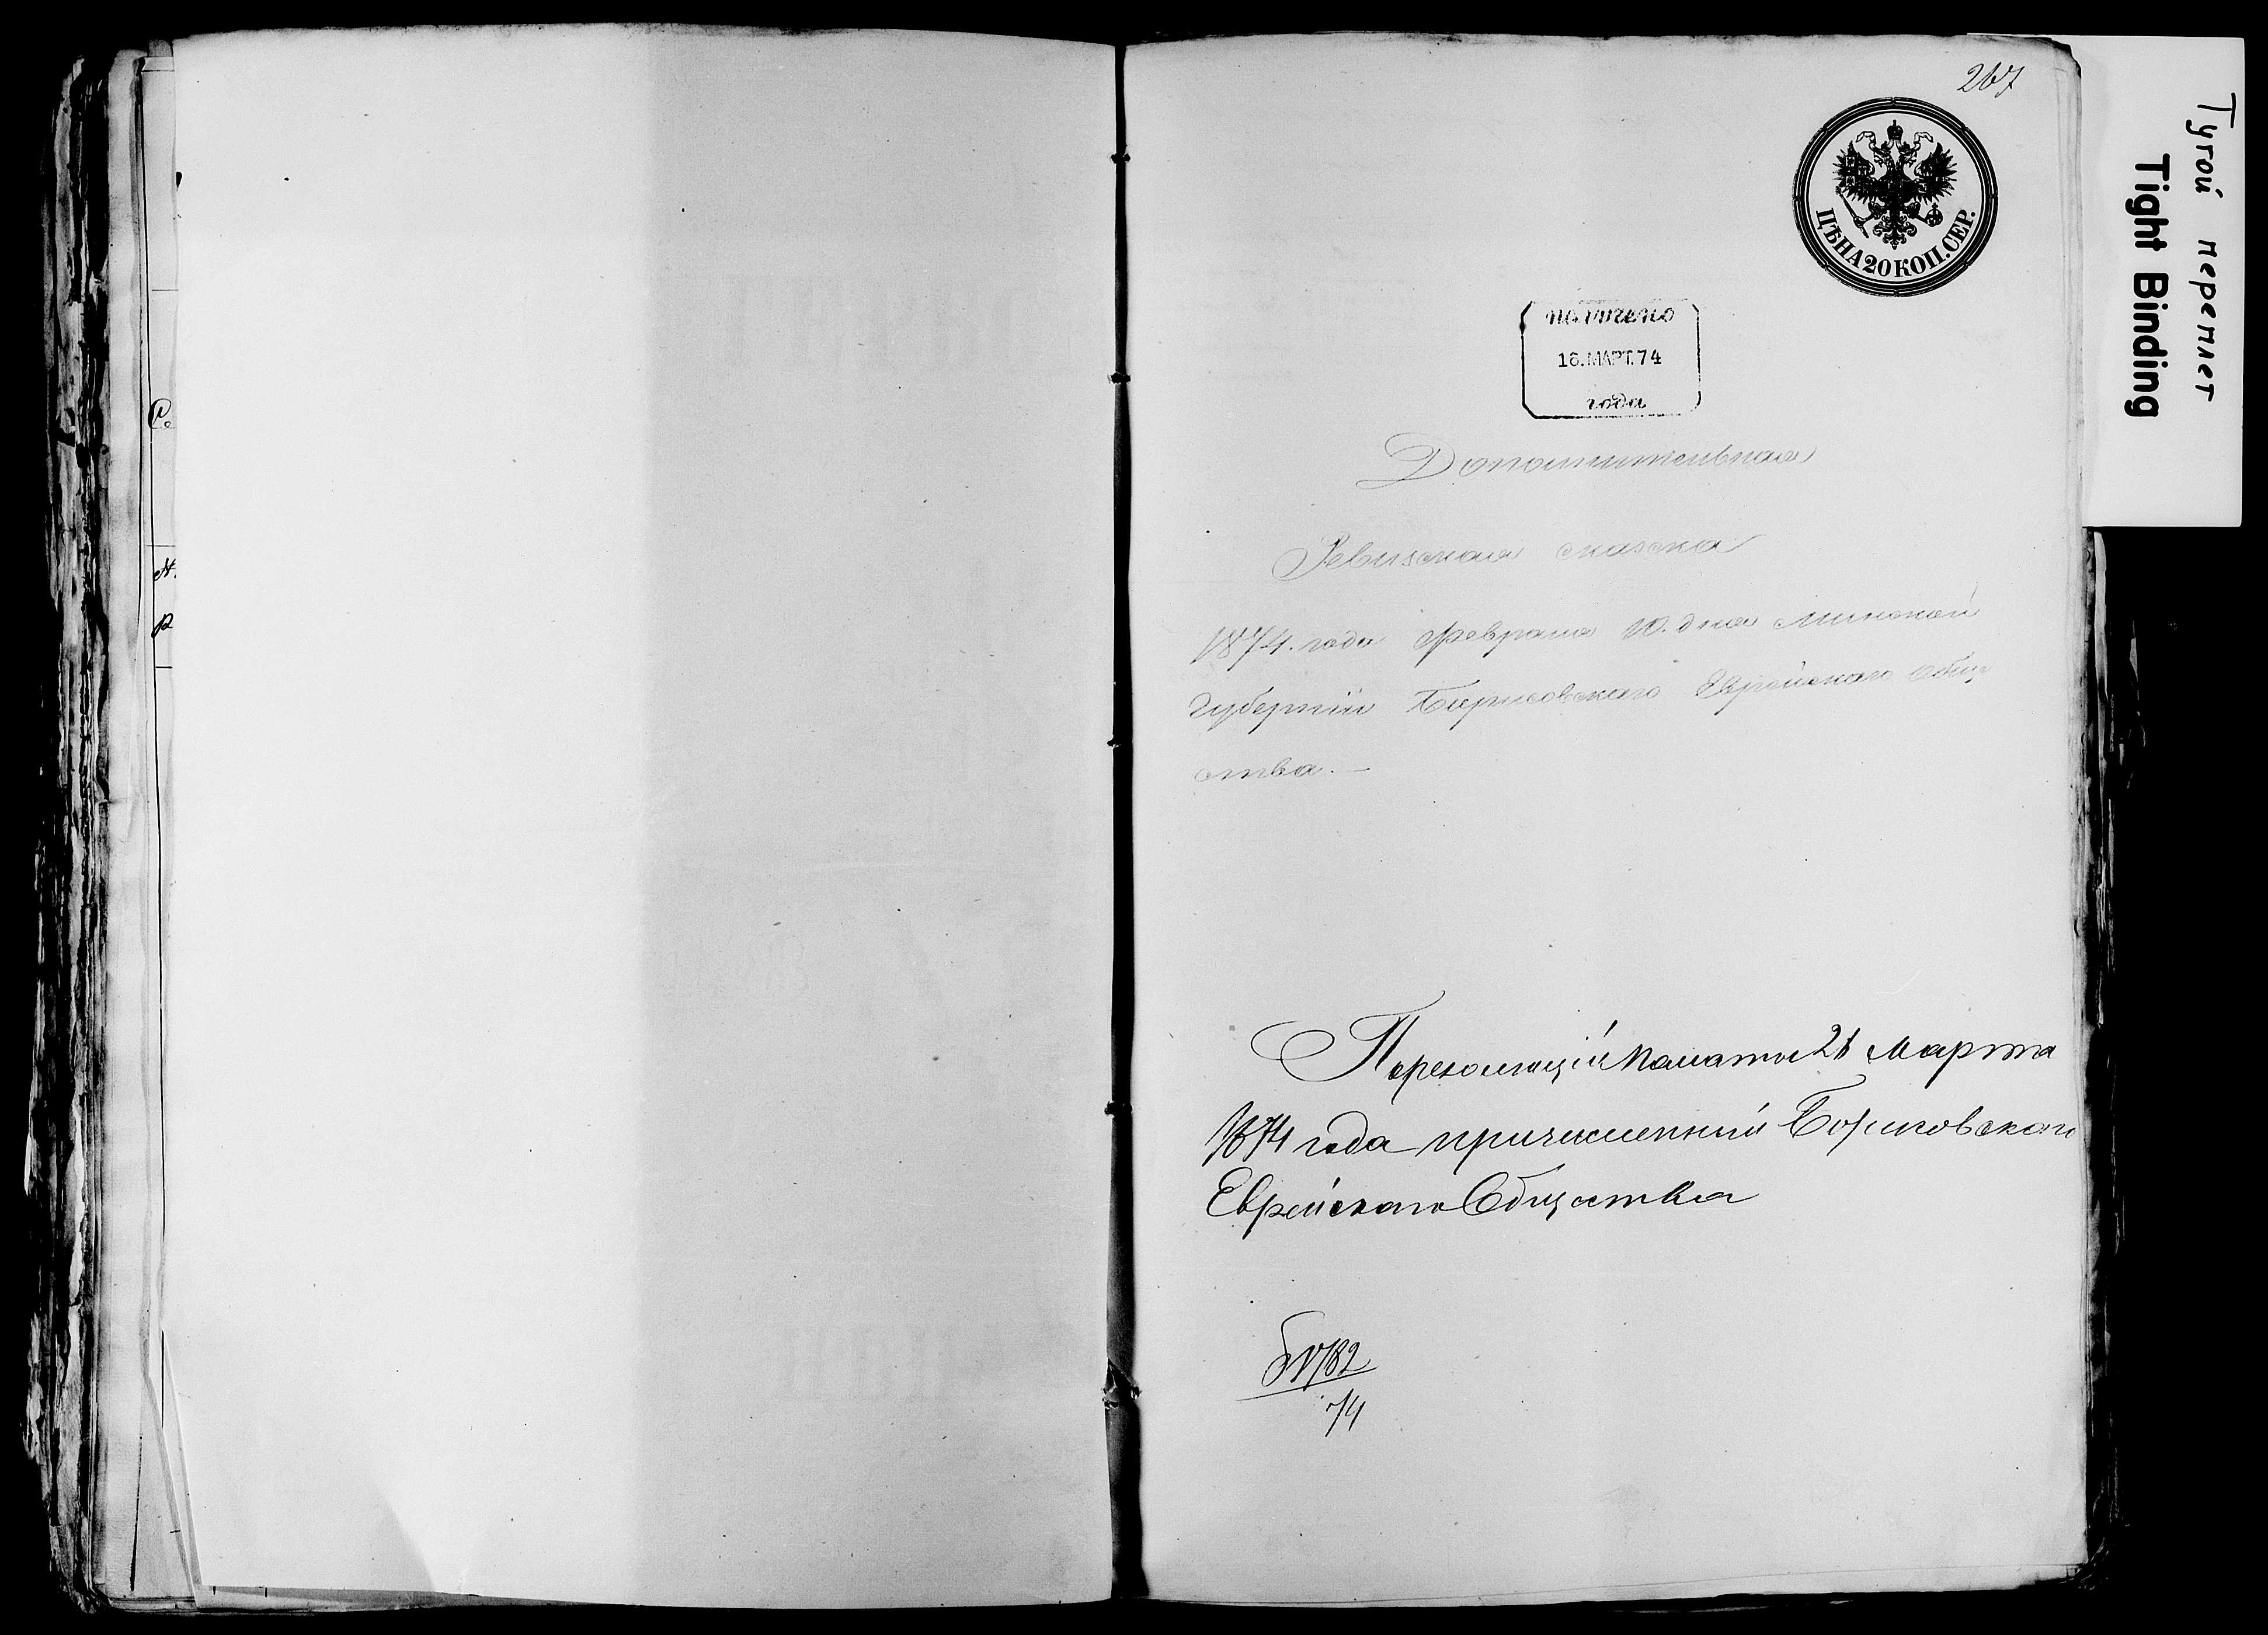 267
ЦѢНА 20 КОП. СЕР.
Тугой переплет
Tight Binding
получено
16. МАРТ. 74
года
Дополнительная
Ревизская сказка
1874. года Февраля 10. дня Минской
губерніи Борисовскаго Еврейскаго Обще
ства. —
По резолюціи Палаты 21 Марта
1874 года причисленный Борисовскаго
Еврейскаго Общества
74